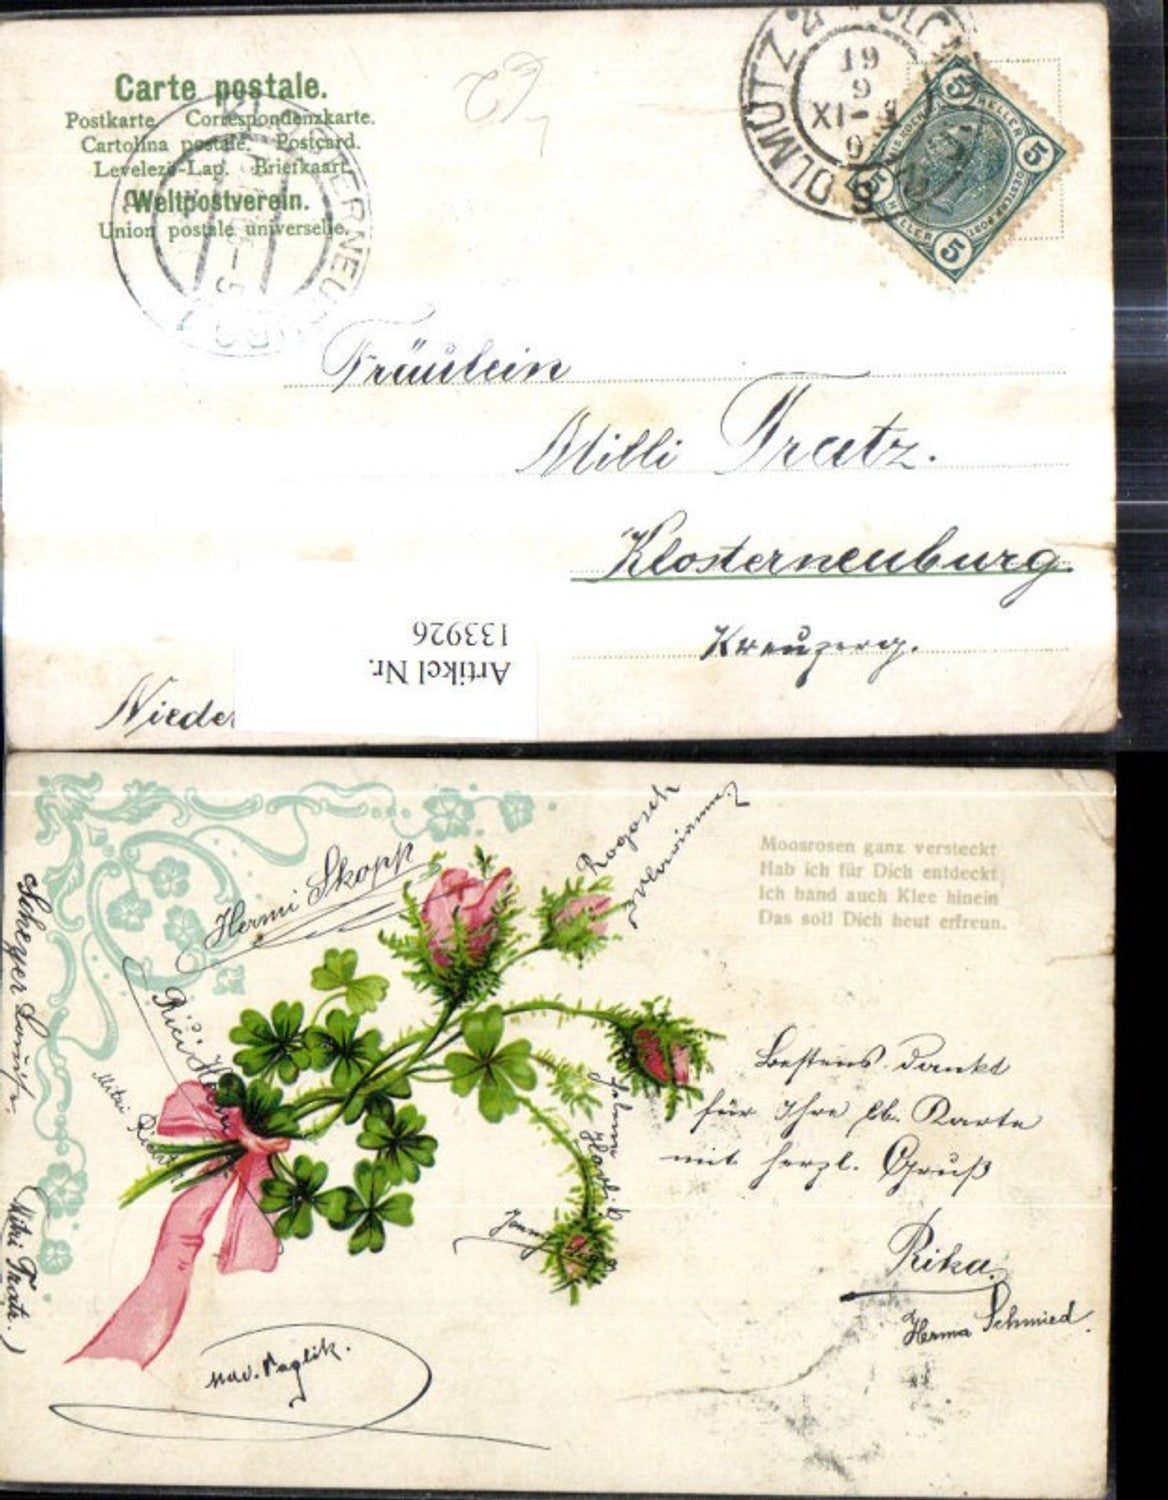 Carte postale.
Postkarte. Correspondenzkarte.
Cartolina postale. Postcard.
Levelezö-Lap. Briefkaart.
Weltpostverein.
Union postale universelle.
OLMÜTZ 2
19
9
XI-
8
5 HELLER 5
5 HELLER 5
Fräulein
Milli Tratz.
Klosterneuburg
Artikel Nr.
133926
Nieder
Moosrosen ganz versteckt
Hab ich für Dich entdeckt
Ich band auch Klee hinein
Das soll Dich heut erfreun.
Hermi Skopp
Rogosch
Scheyer
Rici
Mitzi
Bestens dankt
für Ihre lb. Karte
mit herzl. Gruß
Rika.
Herma Schmied
Mitzi Tratz.